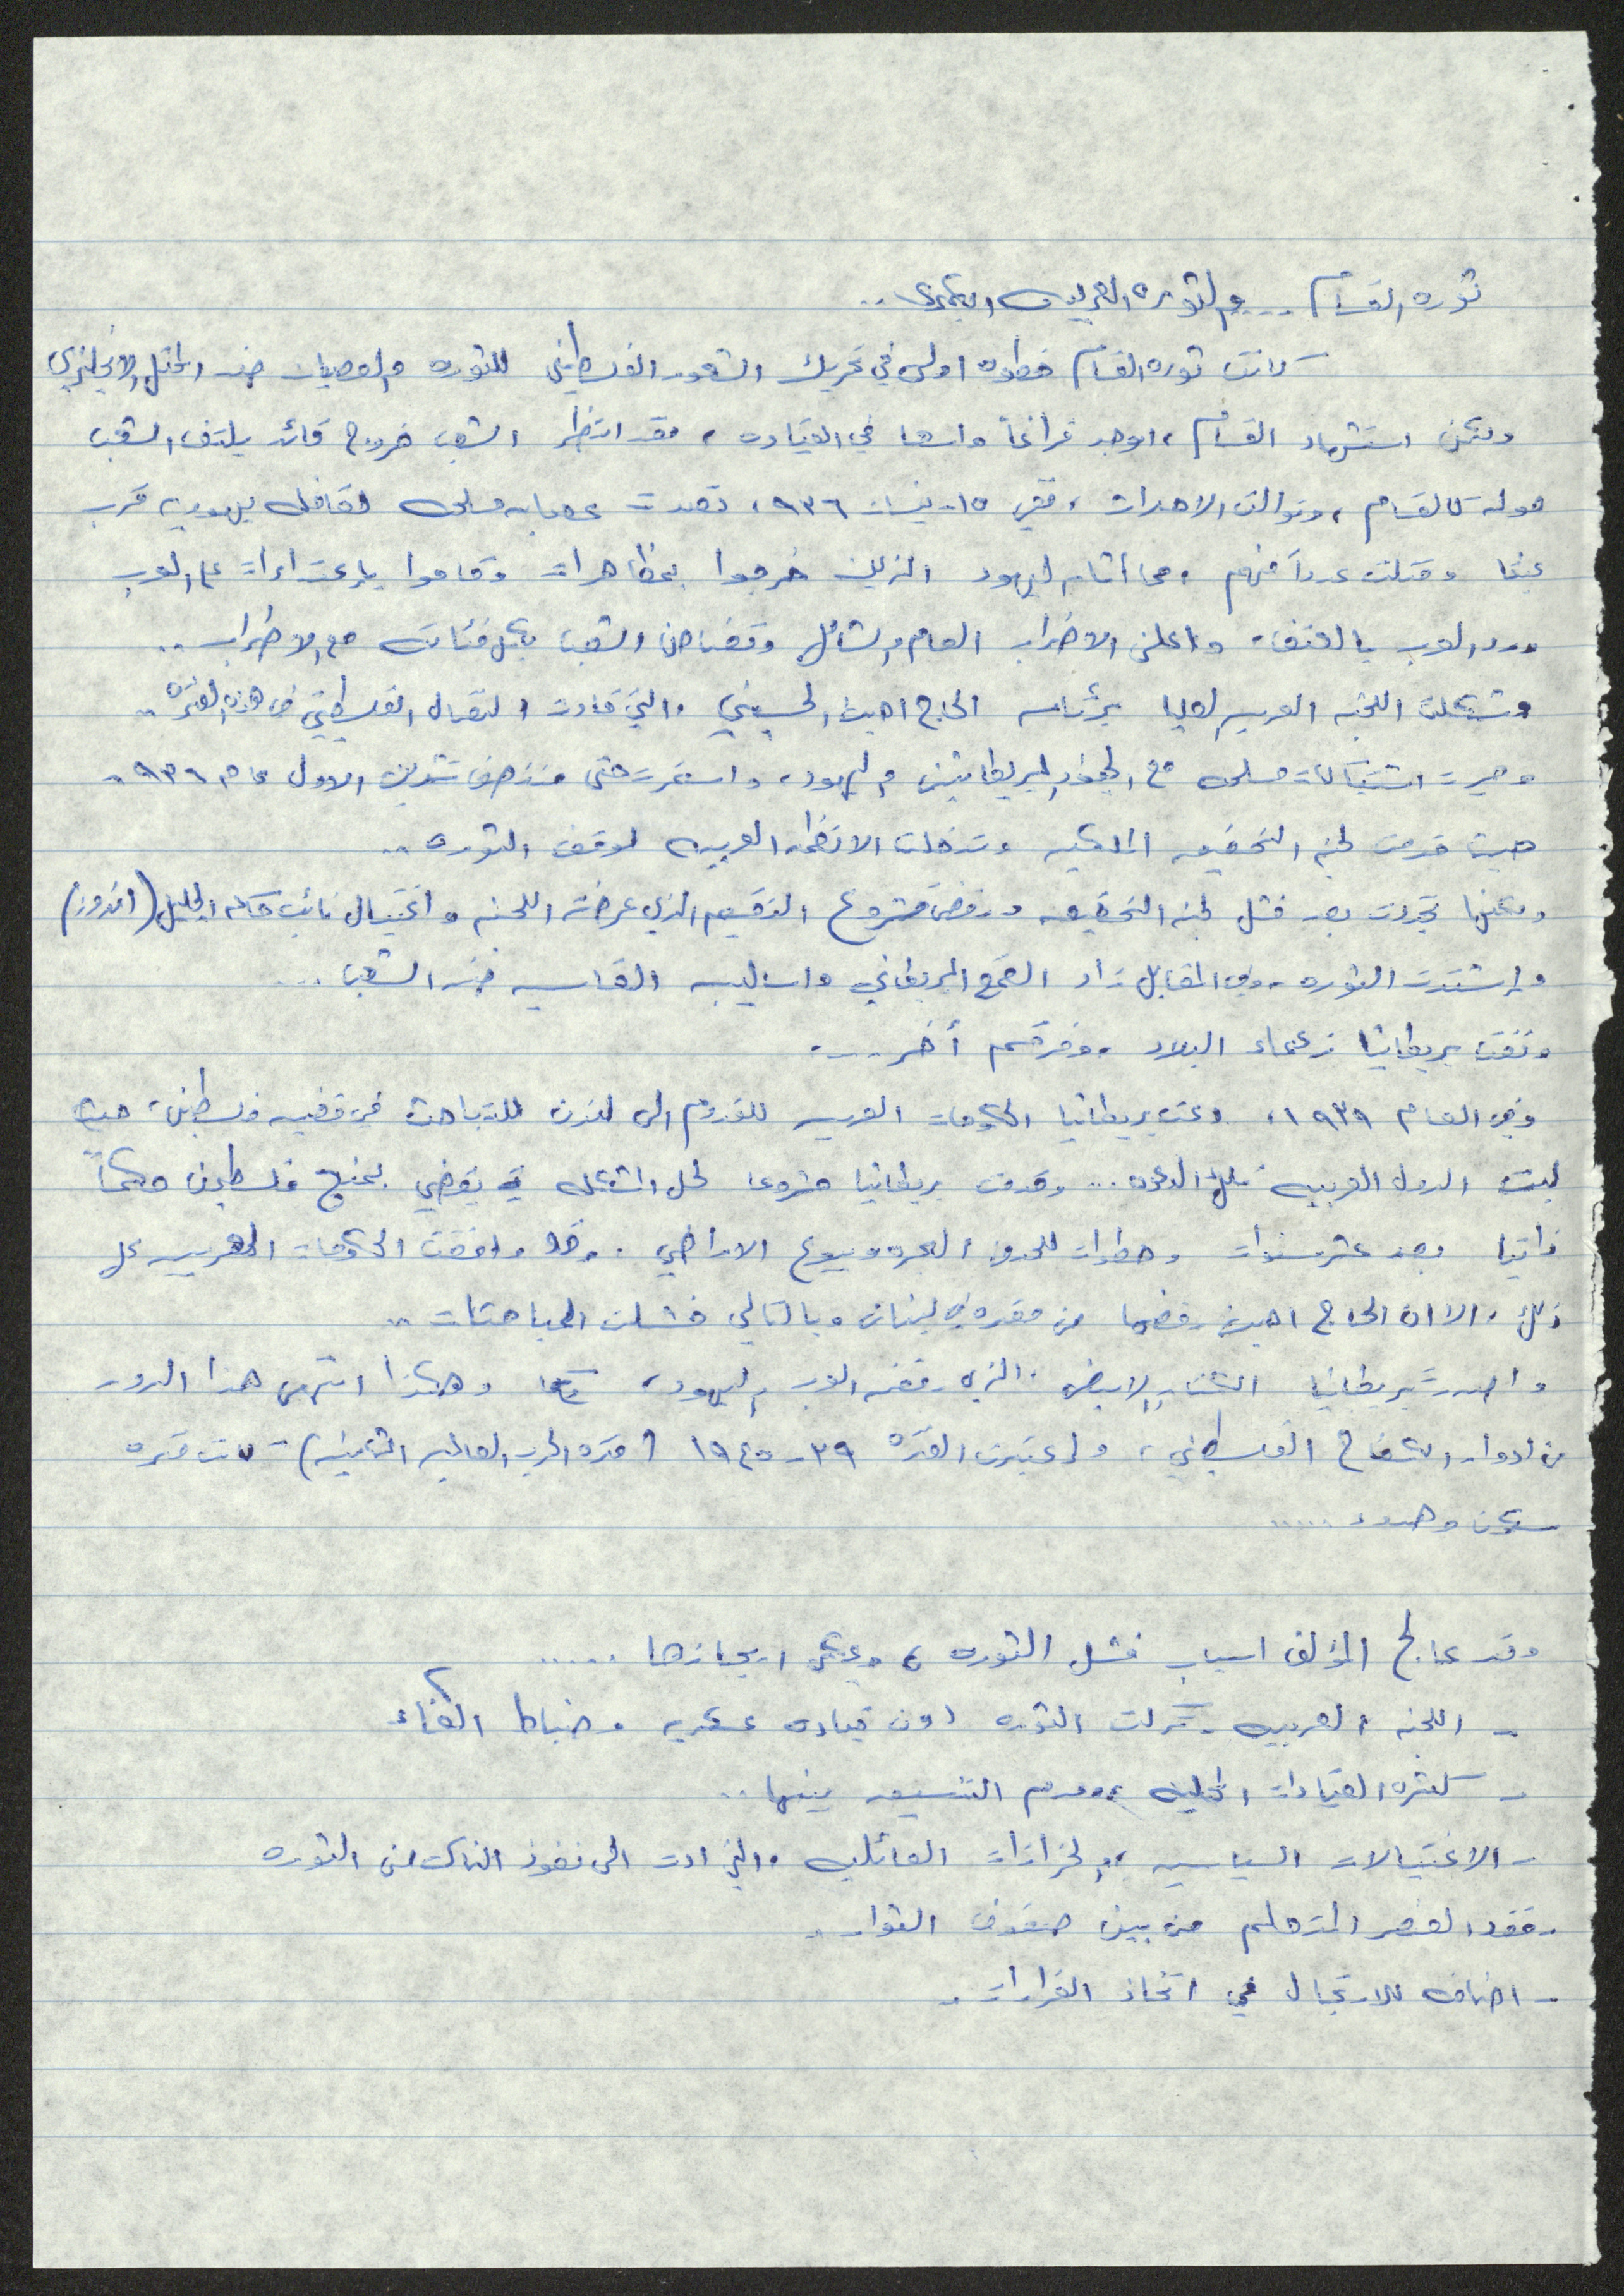 ثوره القسام .. والثوره العربيه الكبرى ..
كانت ثوره القسام خطوه اولى في تحريك الشعور الفلسطيني للثوره والعصيان ضد المحتل الانجليزي
ولكن استشهاد القسام، اوجد فراغاً واسعا في القياده، فقد انتظر الشعب خروج قائد يلتف الشعب
حوله كالقسام، وتوالت الاحداث، ففي ١٥ - نيسان ٩٣٦، تصدت عصابه مسلحه لقافله يهوديه قرب
عنبتا وقتلت عدداً منهم، مما أثار اليهود الذين خرجوا بمظاهرات وقاموا بإعتداءات على العرب
ورد العرب بالعنف، واعلن الاضراب العام والشامل وتضامن الشعب بكل فئاته مع الاضراب ..
وتشكلت اللجنه العربيه العليا برئاسه الحاج امين الحسيني والتي قادت النضال الفلسطيني في هذه الفتره ..
وجرت اشتباكات مسلحه مع الجنود البريطانيين واليهود، واستمرت حتى منتصف تشرين الاول عام ٩٣٦ ..
حيث قدمت لجنه التحقيق الملكيه وتدخلت الانظمه العربيه لوقف الثوره ..
ولكنها تجددت بعد فشل لجنه التحقيق ورفض مشروع التقسيم الذي عرضته اللجنه واغتيال نائب حاكم الجليل (اندروز)
وإشتدت الثوره، وفي المقابل زاد القمع البريطاني واساليبه القاسيه ضد الشعب ...
ونفت بريطانيا زعماء البلاد، وفر قسم أخر ...
وفي العام ١٩٣٩، دعت بريطانيا الحكومات العربيه للقدوم الى لندن للتباحث في قضيه فلسطين، حيث
لبت الدول العربيه تلك الدعوه ... وقدمت بريطانيا مشروعا لحل المشكله يقضي بمنح فلسطين حكماً
ذاتيا بعد عشر سنوات و للحد من الهجره وبيوع الاراضي . وقد وافقت الحكومات العربيه على
ذلك، الا ان الحاج امين رفضها من مقره في لبنان وبالتالي فشلت المباحثات ..
واصدرت بريطانيا الكتاب الابيض، الذي رفضه العرب واليهود، وهكذا انتهى هذا الدور
من ادوار الكفاح الفلسطيني، وإعتبرت الفتره ٣٩ - ١٩٤٥ (فتره الحرب العالميه الثانيه) كانت فتره
سكون وهدوء .....
وقد عالج المؤلف اسباب فشل الثوره، ويمكن ايجازها .....
- اللجنه العربيه - تركت الثوره دون قياده عسكريه وضباط اكفاء
- كثره القيادات المحليه، وعدم التنسيق بينها ..
- الاغتيالات السياسيه، والحزازات العائليه، والتي ادت الى نفور الناس من الثوره
- فقد العنصر المتعلم من بين صفوف الثوار ..
- اضافه للارتجال في اتخاذ القرارات ..